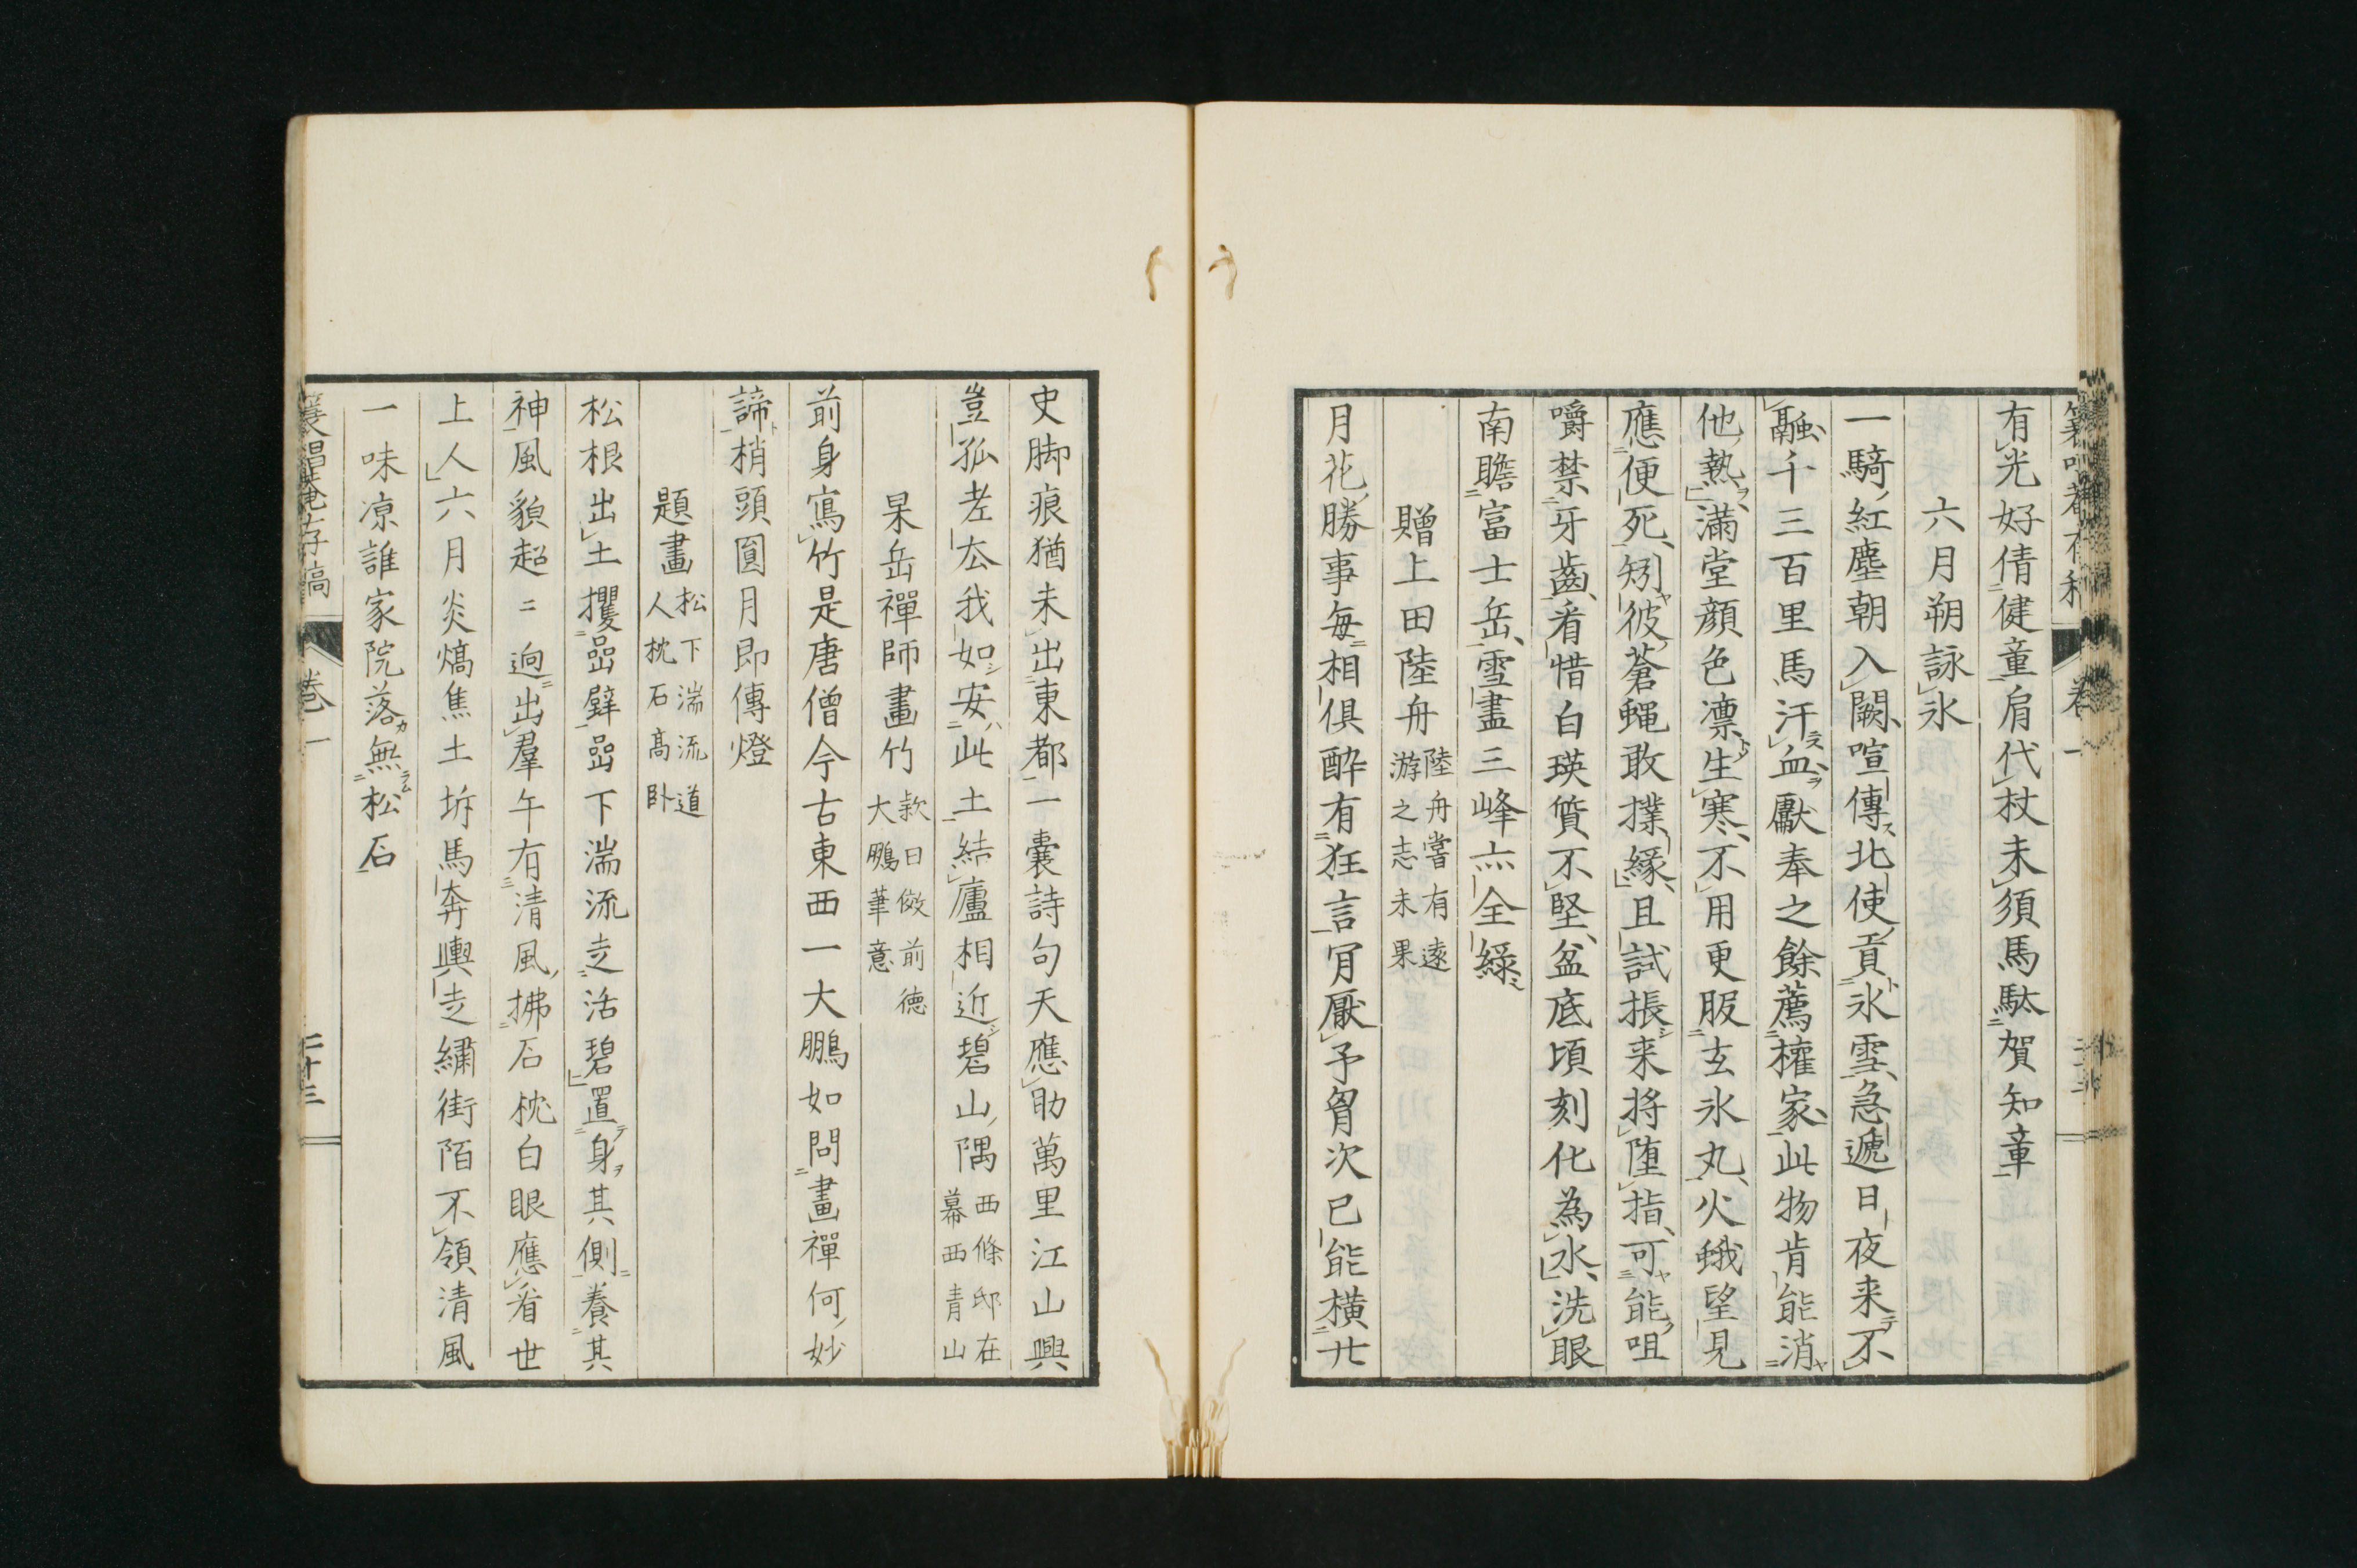 有光好倩健童肩代杖未須馬馱賀知章
六月朔詠氷
一騎紅塵朝入闕喧傳北使貢氷雪急遞日夜来不
融千三百里馬汗血獻奉之餘薦權家此物肯能消
他熱滿堂顔色凛生寒不用更服玄氷丸火蛾望見
應便死矧彼蒼蝿敢撲緣且試振来将堕指可能咀
嚼禁牙齒看惜白瑛質不堅盆底頃刻化為水洗眼
南瞻富士岳雪盡三峰亦全緑
贈上田陸舟 陸舟嘗有遠
游之志未果
月花勝事每相俱酔有狂言肎厭予胷次已能橫廿
史脚痕猶未出東都一囊詩句天應助萬里江山興
豈孤老厺我如安此土結廬相近碧山隅 西條邸在
幕西青山
杲岳禪師畫竹 款曰倣前徳
大鵬筆意
前身寫竹是唐僧今古東西一大鵬如問畫禪何妙
諦梢頭圓月即傳燈
題畫 松下湍流道
人枕石高卧
松根出土攫嵒壁嵒下湍流走活碧置身其側養其
神風貌超〻逈出羣午有清風拂石枕白眼應看世
上人六月炎熇焦土坼馬奔輿走繡街陌不領清風
一味凉誰家院落無松石
卷一
二十三